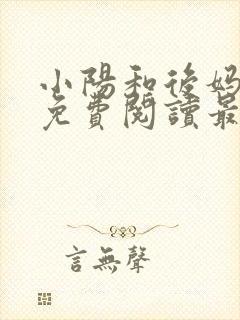 小陽和後媽
免費閱讀最
言無聲